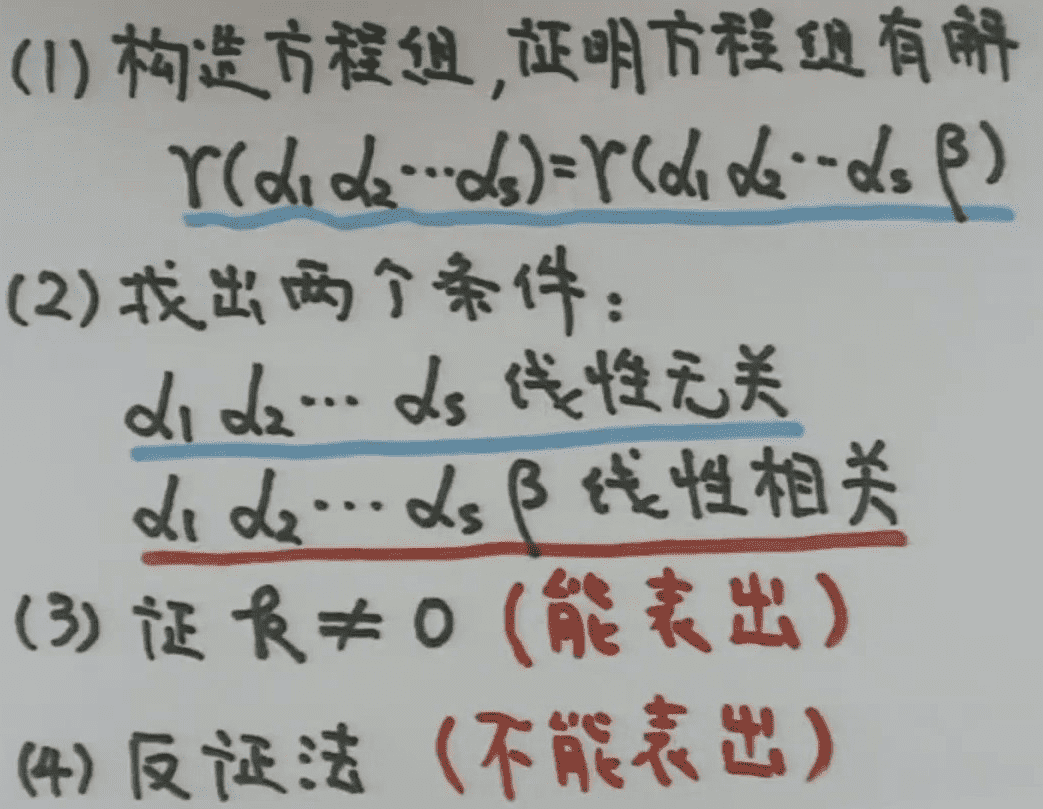 (1) 构造方程组,证明方程组有解
r(α₁ α₂…αₛ)=r(α₁ α₂…αₛ β)
(2) 找出两个条件：
α₁ α₂… αₛ 线性无关
α₁ α₂… αₛ β 线性相关
(3) 证 k ≠ 0 (能表出)
(4) 反证法 (不能表出)